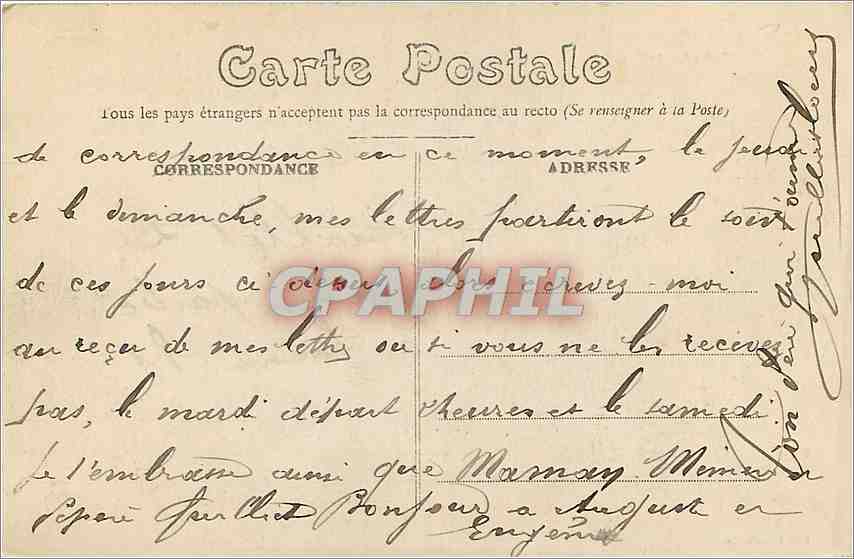 Carte Postale
Tous les pays étrangers n'acceptent pas la correspondance au recto (Se renseigner à la Poste)
de correspondance en ce moment, le jeudi
CORRESPONDANCE ADRESSE
et le dimanche, mes lettres partiront le soir
de ces jours ci alors écrivez-moi
CPAPHIL
au reçu de mes lettres ou si vous ne les recevez
pas, le mardi départ heures et le samedi
Je t'embrasse ainsi que Maman Mémère
Pépère Bonjour a Auguste et
Eugène
Ton qui t'aime